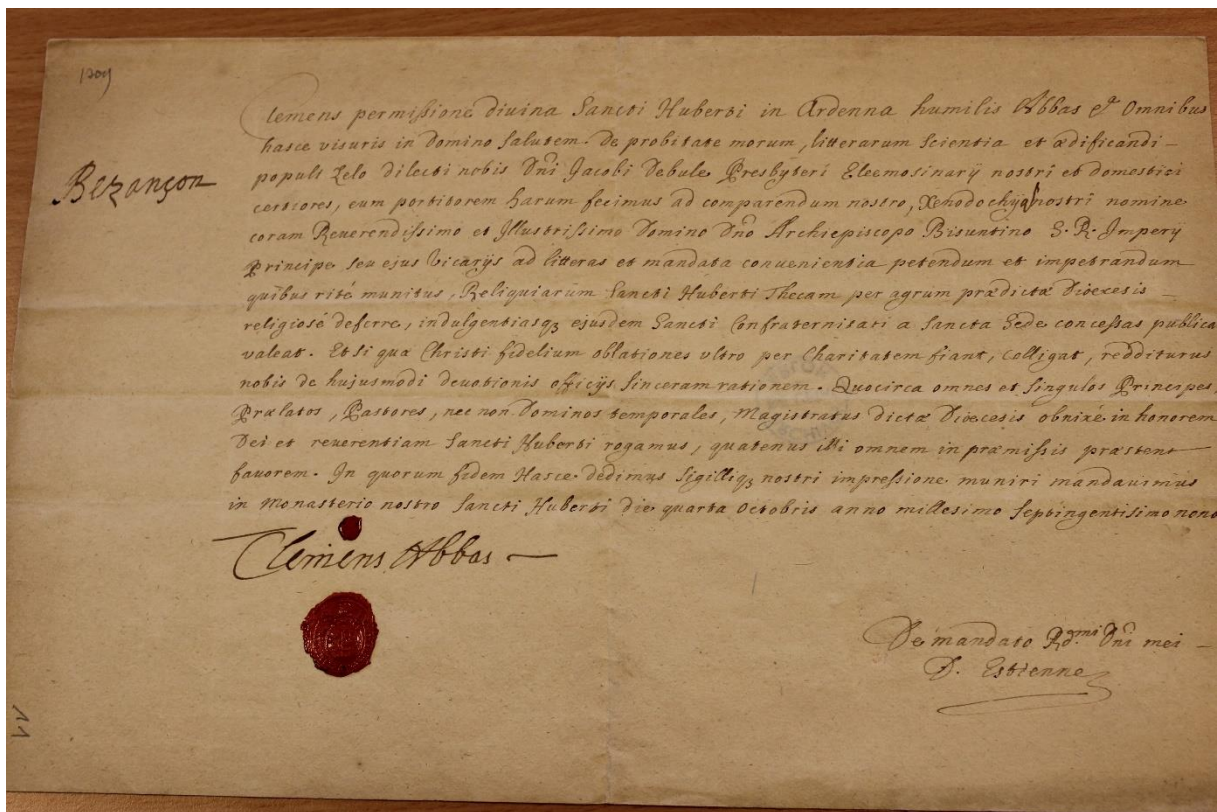 1709
Bezançon
Clemens permissione divina Sancti Huberti in Ardenna humilis Abbas & Omnibus
hasce visuris in Domino Salutem. De probitate morum, litterarum Scientia et ædificandi
populi Zelo dilecti nobis Dni Jacobi Debule Presbyteri Eleemosinarij nostri et domestici
certiores, eum portitorem harum fecimus ad comparendum nostro, Xenodochijq nostri nomine
coram Reuerendissimo et Jllustrissimo Domino Dno Archiepiscopo Bisuntino S. R. Jmperij
Principe, seu ejus Vicarijs ad litteras et mandata conuenientia petendum et impetrandum
quibus rité munitus, Reliquiarum Sancti Huberti Thecam per agrum prædictæ Diœcesis
religiosé deferre, indulgentiasqȝ ejusdem Sancti Confraternitati a Sancta Sede concessas publica
valeat. Et si quæ Christi fidelium oblationes vltro per Charitatem fiant, Colligat, redditurus
nobis de hujusmodi deuotionis officijs Sinceram rationem. Quocirca omnes et Singulos Principes,
Prælatos, Pastores, nec non Dominos temporales, Magistratus dictæ Diœcesis obnixé in honorem
Dei et reuerentiam Sancti Huberti rogamus, quatenus illi omnem in præmissis præstent
fauorem. In quorum fidem Hasce dedimus Sigilliqȝ nostri impressione muniri mandauimus
in Monasterio nostro Sancti Huberti die quarta Octobris anno millesimo Septingentisimo nono
Clemens Abbas
De mandato Rd.mi Dni mei
D. Estienne
11